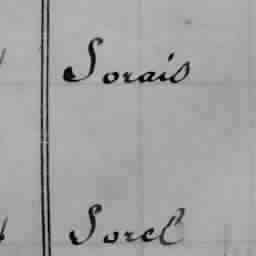 Sorais
Sorel